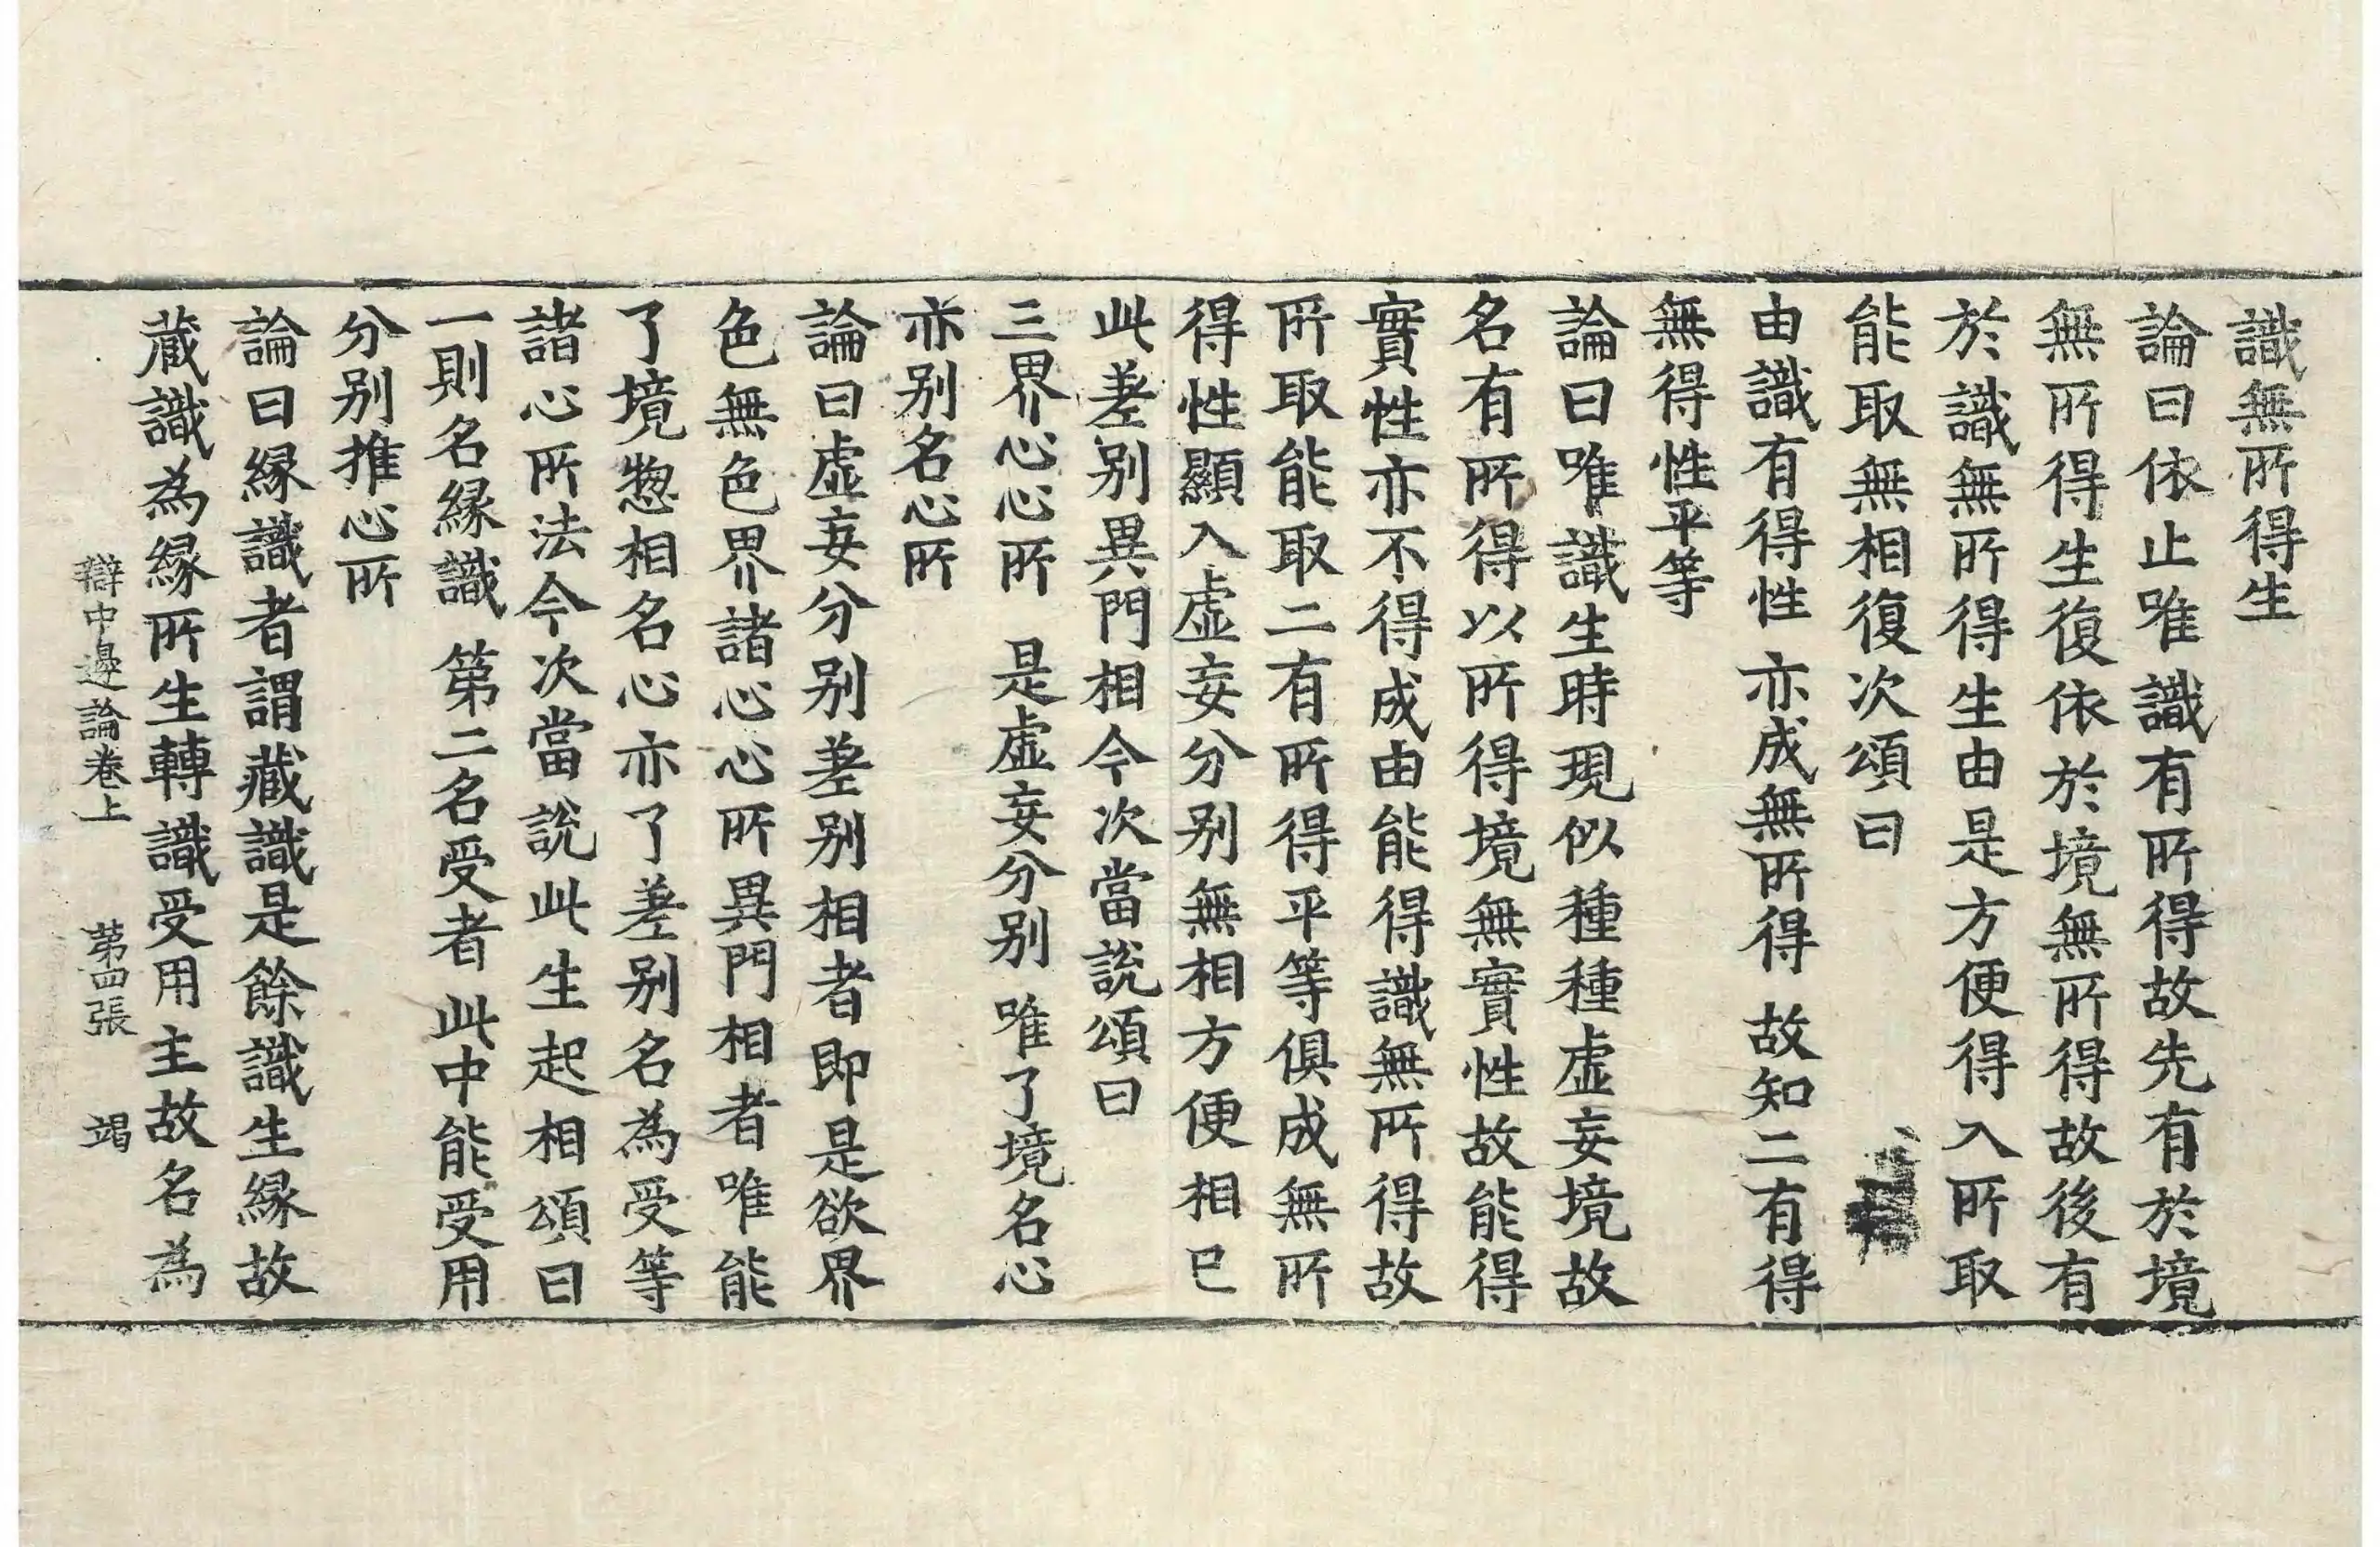 識無所得生
論曰依止唯識有所得故先有於境
無所得生復依於境無所得故後有
於識無所得生由是方便得入所取
能取無相復次頌曰
由識有得性 亦成無所得 故知二有得
無得性平等
論曰唯識生時現似種種虛妄境故
名有所得以所得境無實性故能得
實性亦不得成由能得識無所得故
所取能取二有所得平等俱成無所
得性顯入虛妄分別無相方便相已
此差別異門相今次當說頌曰
三界心心所 是虛妄分別 唯了境名心
亦別名心所
論曰虛妄分別差別相者即是欲界
色無色界諸心心所異門相者唯能
了境惣相名心亦了差別名為受等
諸心所法今次當說此生起相頌曰
一則名緣識 第二名受者 此中能受用
分別推心所
論曰緣識者謂藏識是餘識生緣故
藏識為緣所生轉識受用主故名為
辯中邊論卷上 第四張 竭